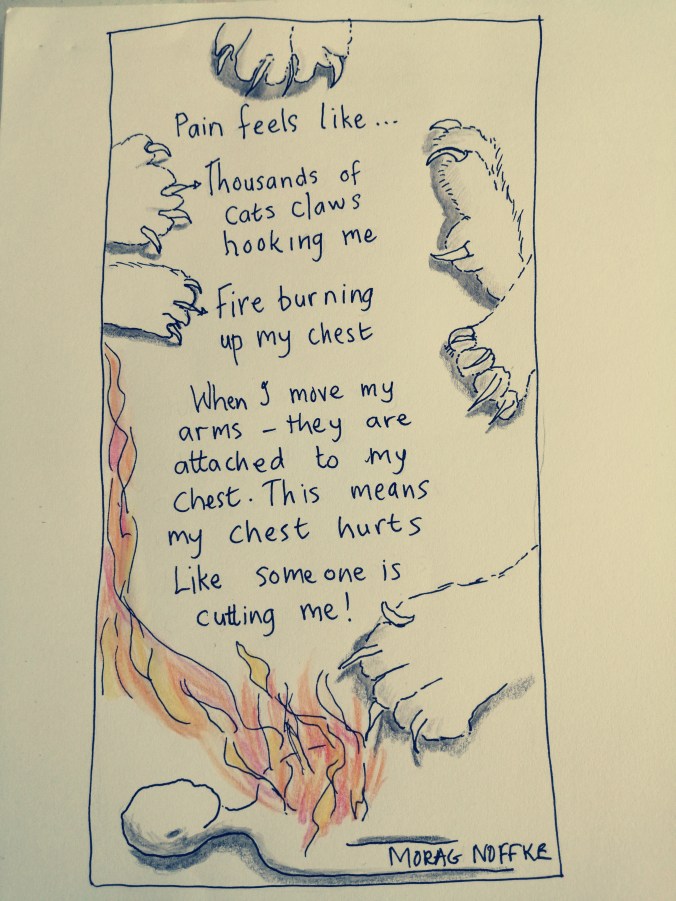 Pain feels like...
Thousands of
cats claws
hooking me
Fire burning
up my chest
When I move my
arms - they are
attached to my
chest. This means
my chest hurts
Like someone is
cutting me!
MORAG NOFFKE